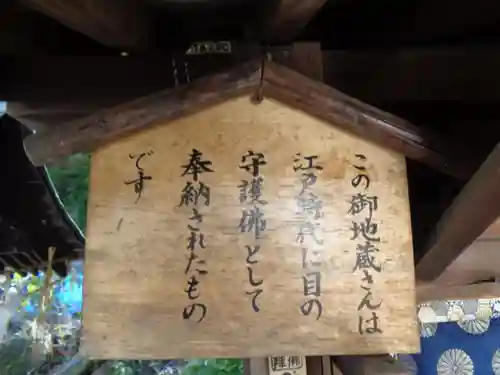 この御蔵さんは
江戸時代に目の
守護佛として
奉納されたもの
です